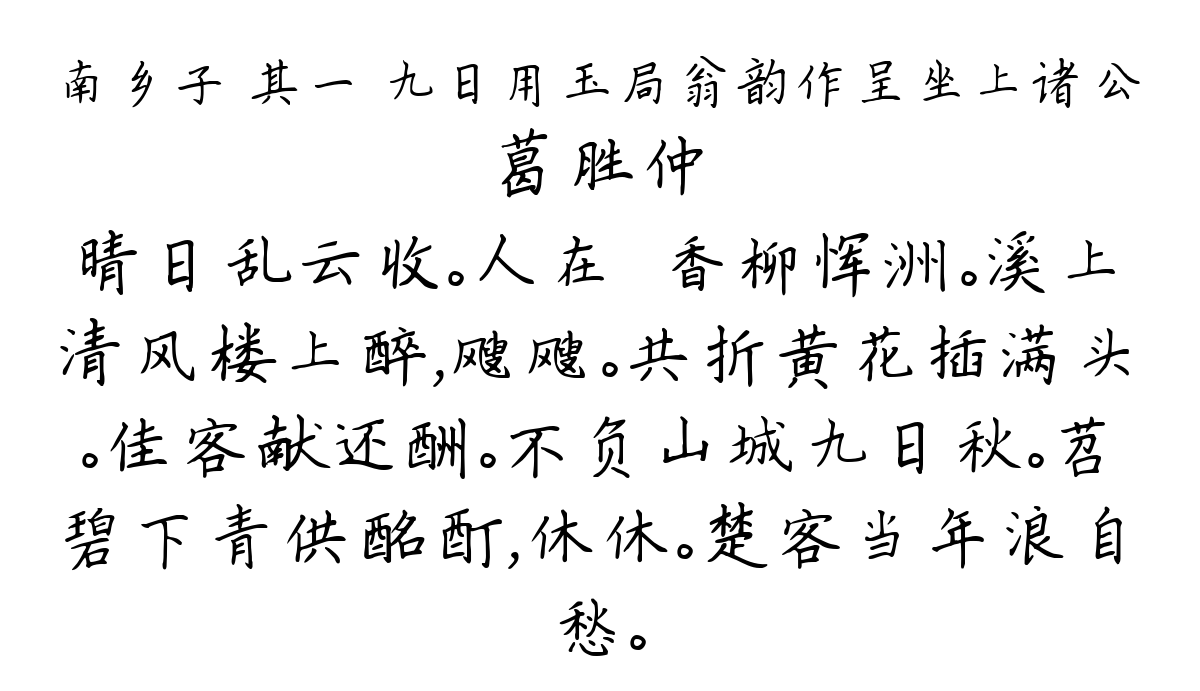 南乡子 其一 九日用玉局翁韵作呈坐上诸公
葛胜仲
晴日乱云收。人在 香柳恽洲。溪上
清风楼上醉,飕飕。共折黄花插满头
。佳客献还酬。不负山城九日秋。苕
碧下青供酩酊,休休。楚客当年浪自
愁。